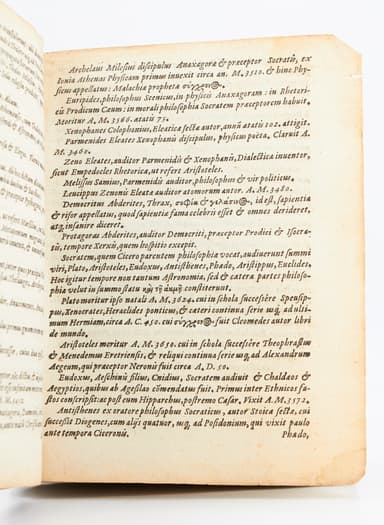 Archelaus Milesius discipulus Anaxagoræ & præceptor Socratis, ex
Ionia Athenas Physicam primus inuexit circa an. M. 3510. & hinc Phy-
sicus appellatus: Malachiæ prophetæ
Euripides, philosophus Scenicus, in physicis Anaxagoram: in Rhetori-
cis Prodicum Cæum: in morali philosophia Socratem præceptorem habuit.
Moritur A. M. 3566. ætatis 75.
Xenophanes Colophonius, Eleaticæ sectæ autor, annũ ætatis 102. attigit.
Parmenides Eleates Xenophanis discipulus, physicus poëta. Claruit A.
M. 3462.
Zeno Eleates, auditor Parmenidis & Xenophanis, Dialectica inuentor,
sicut Empedocles Rhetorica, ut refert Aristoteles.
Melissus Samius, Parmenidis auditor, philosophus & vir politicus.
Leucippus Zenonis Eleatæ auditor atomorum autor. A. M. 3480.
Democritus Abderites, Thrax, σοφία & γελασῖνος, id est, sapientia
& risor appellatus, quod sapientia fama celebris esset & omnes derideret,
atq; insanire diceret.
Protagoras Abderites, auditor Democriti, præceptor Prodici & Isocra-
tis, tempore Xerxis, quem hospitio excepit.
Socratem, quem Cicero parentem philosophiæ vocat, audiuerunt summi
viri, Plato, Aristoteles, Eudoxus, Antisthenes, Phædo, Aristippus, Euclides.
Hoc igitur tempore non tantum Astronomia, sed & cæteræ partes philoso-
phiæ velut in summo statu constiterunt.
Plato moritur ipso natali A. M. 3624. cui in schola successêre Speusip-
pus, Xenocrates, Heraclides ponticus, & cæteri continua serie usq; ad ulti-
mum Hermiam, circa A. C. 450. cui fuit Cleomedes autor libri
de mundo.
Aristoteles moritur A. M. 3650. cui in schola successêre Theophrastus
& Menedemus Eretriensis, & reliqui continua serie usq; ad Alexandrum
Aegeum, qui præceptor Neronis fuit circa A. D. 50.
Eudoxus, Aeschinis filius, Cnidius, Socratem audiuit & Chaldæos &
Aegyptios, quibus ab Agesilao cõmendatus fuit. Primus inter Ethnicos fa-
stos conscripsit: ac post eum Hipparchus, postremo Cæsar. Vixit A. M. 3572.
Antisthenes ex oratore philosophus Socraticus, autor Stoicæ sectæ, cui
successit Diogenes, cum alijs quatuor, usq; ad Posidonium, qui vixit paulo
ante tempora Ciceronis.
Phædo,